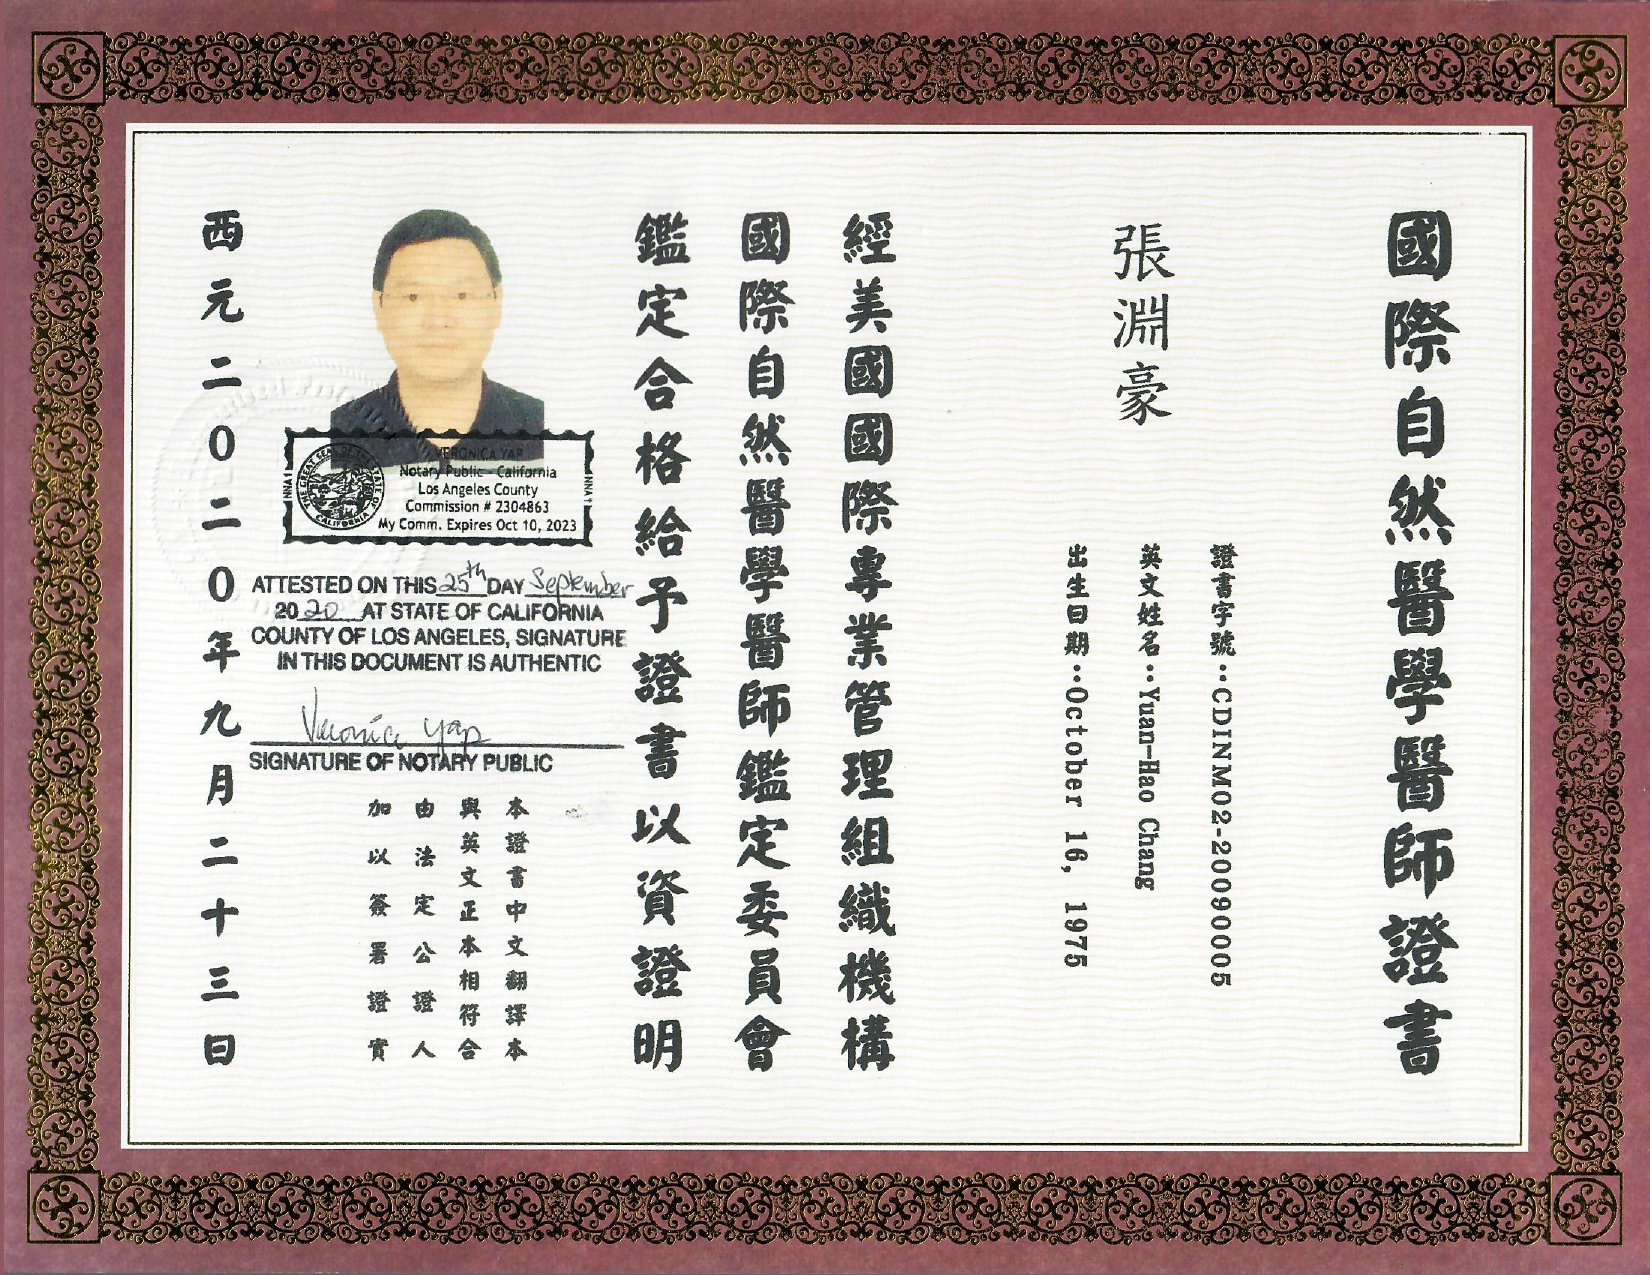 國際自然醫學醫師證書
張淵豪
證書字號：CDINM02-20090005
英文姓名：Yuan-Hao Chang
出生日期：October 16, 1975
經美國國際專業管理組織機構
國際自然醫學醫師鑑定委員會
鑑定合格給予證書以資證明
VERONICA YAP
Notary Public - California
Los Angeles County
Commission # 2304863
My Comm. Expires Oct 10, 2023
ATTESTED ON THIS 25th DAY September
2020 AT STATE OF CALIFORNIA
COUNTY OF LOS ANGELES, SIGNATURE
IN THIS DOCUMENT IS AUTHENTIC
Veronica Yap
SIGNATURE OF NOTARY PUBLIC
本證書中文翻譯本
與英文正本相符合
由法定公證人
加以簽署證實
西元二0二0年九月二十三日